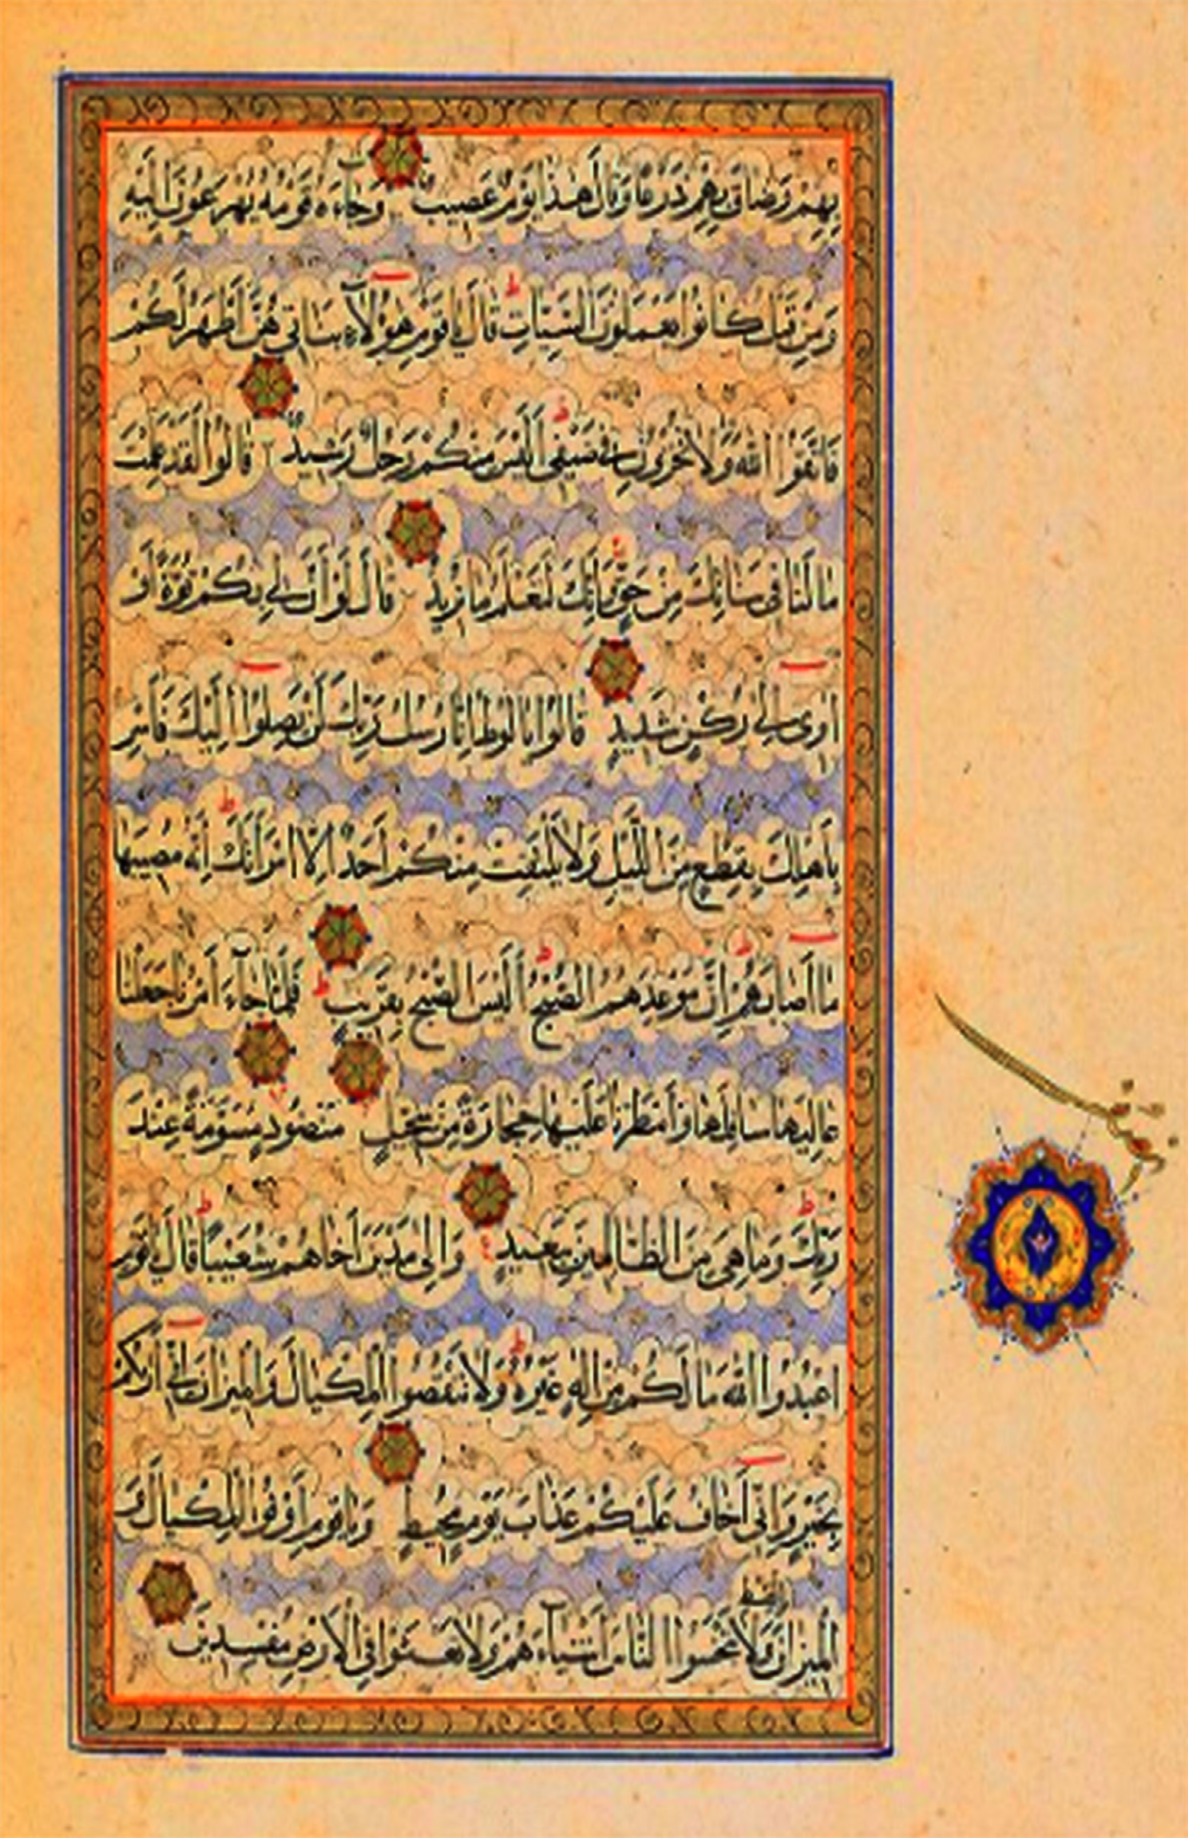 بِهِمْ وَضَاقَ بِهِمْ ذَرْعًا وَقَالَ هٰذَا يَوْمٌ عَصِيبٌ وَجَاءَهُ قَوْمُهُ يُهْرَعُونَ إِلَيْهِ
وَمِنْ قَبْلُ كَانُوا يَعْمَلُونَ السَّيِّئَاتِ قَالَ يَا قَوْمِ هٰؤُلَاءِ بَنَاتِي هُنَّ أَطْهَرُ لَكُمْ
فَاتَّقُوا اللَّهَ وَلَا تُخْزُونِ فِي ضَيْفِي أَلَيْسَ مِنْكُمْ رَجُلٌ رَشِيدٌ قَالُوا لَقَدْ عَلِمْتَ
مَا لَنَا فِي بَنَاتِكَ مِنْ حَقٍّ وَإِنَّكَ لَتَعْلَمُ مَا نُرِيدُ قَالَ لَوْ أَنَّ لِي بِكُمْ قُوَّةً أَوْ
آوِي إِلَى رُكْنٍ شَدِيدٍ قَالُوا يَا لُوطُ إِنَّا رُسُلُ رَبِّكَ لَنْ يَصِلُوا إِلَيْكَ فَأَسْرِ
بِأَهْلِكَ بِقِطْعٍ مِنَ اللَّيْلِ وَلَا يَلْتَفِتْ مِنْكُمْ أَحَدٌ إِلَّا امْرَأَتَكَ إِنَّهُ مُصِيبُهَا
مَا أَصَابَهُمْ إِنَّ مَوْعِدَهُمُ الصُّبْحُ أَلَيْسَ الصُّبْحُ بِقَرِيبٍ فَلَمَّا جَاءَ أَمْرُنَا جَعَلْنَا
عَالِيَهَا سَافِلَهَا وَأَمْطَرْنَا عَلَيْهَا حِجَارَةً مِنْ سِجِّيلٍ مَنْضُودٍ مُسَوَّمَةً عِنْدَ
رَبِّكَ وَمَا هِيَ مِنَ الظَّالِمِينَ بِبَعِيدٍ وَإِلَى مَدْيَنَ أَخَاهُمْ شُعَيْبًا قَالَ يَا قَوْمِ
اعْبُدُوا اللَّهَ مَا لَكُمْ مِنْ إِلٰهٍ غَيْرُهُ وَلَا تَنْقُصُوا الْمِكْيَالَ وَالْمِيزَانَ إِنِّي أَرَاكُمْ
بِخَيْرٍ وَإِنِّي أَخَافُ عَلَيْكُمْ عَذَابَ يَوْمٍ مُحِيطٍ وَيَا قَوْمِ أَوْفُوا الْمِكْيَالَ وَ
بالقسط
الْمِيزَانَ وَلَا تَبْخَسُوا النَّاسَ أَشْيَاءَهُمْ وَلَا تَعْثَوْا فِي الْأَرْضِ مُفْسِدِينَ